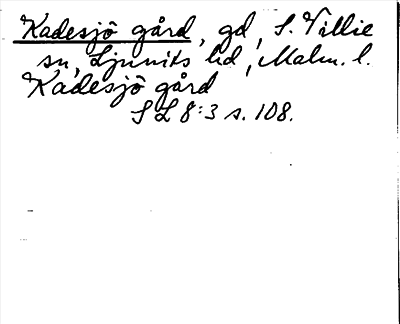 Kadesjö gård, gd, S. Villie
sn, Ljunits hd, Malm. l.
Kadesjö gård
S L 8:3 s. 108.